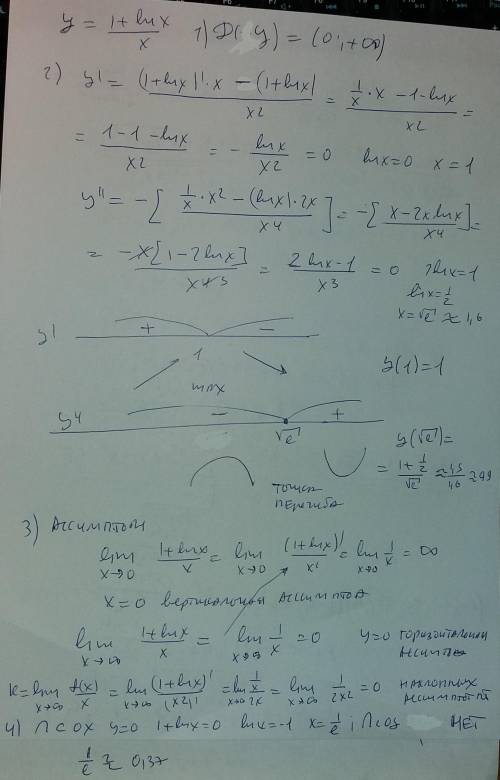 y = (1+lnx)/x   1) D(y) = (0; +∞)
2) y' = ((1+lnx)'·x − (1+lnx))/x2 = (1/x·x − 1 − lnx)/x2 =
= (1−1−lnx)/x2 = − lnx/x2 = 0   lnx=0   x=1
y'' = −[(1/x·x2 − (lnx)·2x)/x4] = −[(x−2xlnx)/x4] =
= −x[1−2lnx]/x4 3 = (2lnx−1)/x3 = 0   2lnx=1
lnx=1/2
x=√e ≈ 1,6
y'   +   −
1
max
y(1)=1
y''   −   +
√e
y(√e)=
= (1+1/2)/√e ≈ 1,5/1,6 ≈
точка
перегиба
3) Ассимптоты
lim x→0 (1+lnx)/x = lim x→0 (1+lnx)'/x' = lim x→0 1/x = ∞
x=0 вертикальная ассимптота
lim x→∞ (1+lnx)/x = lim x→∞ 1/x = 0   y=0 горизонтальная
k=lim x→∞ f(x)/x = lim x→∞ (1+lnx)'/(x2)' = lim x→∞ (1/x)/2x = lim x→∞ 1/2x2 = 0   наклонных
4) ∩ с OX   y=0   1+lnx=0   lnx=-1   x=1/e ; ∩ с oy   НЕТ
1/e ≈ 0,37